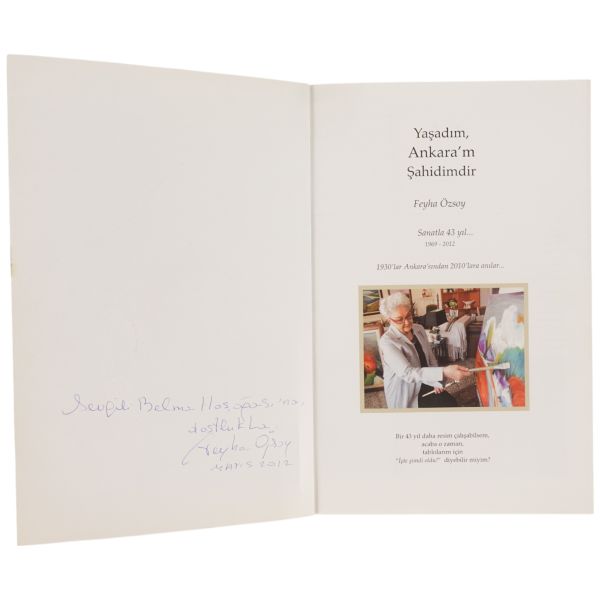 Sevgili Belma Hoşoğası'na,
dostlukla,
Feyha Özsoy
MAYIS 2012
Yaşadım,
Ankara'm
Şahidimdir
Feyha Özsoy
Sanatla 43 yıl...
1969 - 2012
1930'lar Ankara'sından 2010'lara anılar...
Bir 43 yıl daha resim çalışabilsem,
acaba o zaman,
tablolarım için
"İşte şimdi oldu!" diyebilir miyim?